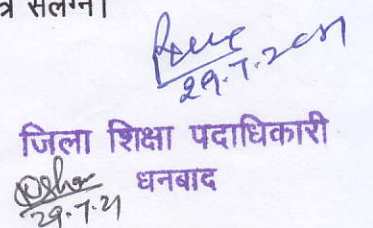 त्र संलग्न।
29.7.2021
जिला शिक्षा पदाधिकारी
धनबाद
29.7.21